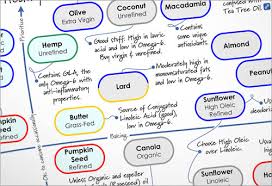 Olive
Extra Virgin
Coconut
Unrefined
Macadamia
Tea Tree Oil
Hemp
Unrefined
Good stuff. High in lauric
acid and low in Omega-6.
Buy virgin & unrefined.
Contains some
unique
antioxidants.
Almond
Contains GLA, the
only Omega-6 with
anti-inflammatory
properties.
Lard
Moderately high in
monounsaturated fats
and low in Omega-6.
Peanut
Butter
Grass-Fed
Source of Conjugated
Linoleic Acid (good),
low in Omega-6.
Sunflower
High Oleic
Refined
Baking
Pumpkin
Seed
Refined
Canola
Organic
Choose High Oleic over
Linoleic.
Sunflower
High Oleic
Unrefined
Pumpkin
Seed
Unless Organic and expeller